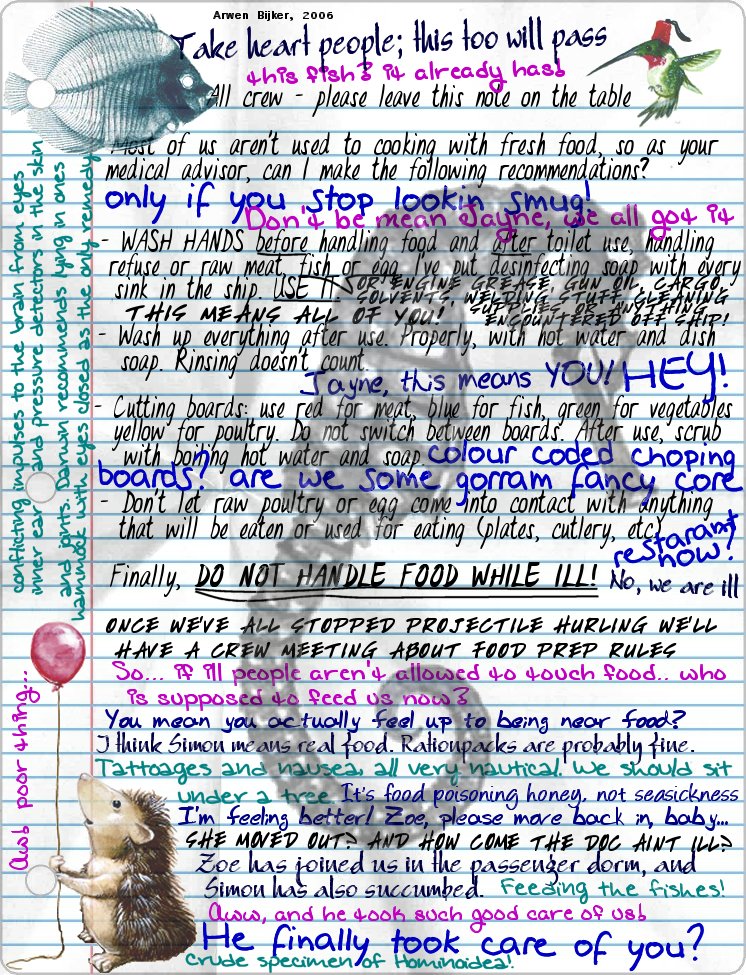 Arwen Bijker, 2006
Take heart people; this too will pass
this fish? it already has!
All crew - please leave this note on the table
Most of us aren't used to cooking with fresh food, so as your
medical advisor, can I make the following recommendations?
only if you stop lookin smug!
Don't be mean Jayne, we all got it
- WASH HANDS before handling food and after toilet use, handling
refuse or raw meat, fish or egg. I've put desinfecting soap with every
sink in the ship. USE IT
OR ENGINE GREASE, GUN OIL, CARGO,
SOLVENTS, WELDING STUFF, CLEANING
SUPPLIES OR ANYTHING
ENCOUNTERED OFF SHIP!
THIS MEANS ALL OF YOU!
- Wash up everything after use. Properly, with hot water and dish
soap. Rinsing doesn't count.
Jayne, this means YOU! HEY!
- Cutting boards: use red for meat, blue for fish, green for vegetables
yellow for poultry. Do not switch between boards. After use, scrub
with boiling hot water and soap
colour coded choping
boards? are we some gorram fancy core
restarant
now?
- Don't let raw poultry or egg come into contact with anything
that will be eaten or used for eating (plates, cutlery, etc)
Finally, DO NOT HANDLE FOOD WHILE ILL!
No, we are ill
ONCE WE'VE ALL STOPPED PROJECTILE HURLING WE'LL
HAVE A CREW MEETING ABOUT FOOD PREP RULES
So... if ill people aren't allowed to touch food.. who
is supposed to feed us now?
You mean you actually feel up to being near food?
I think Simon means real food. Rationpacks are probably fine.
Tattoages and nausea, all very nautical. We should sit
under a tree
It's food poisoning honey, not seasickness
I'm feeling better! Zoe, please move back in, baby...
SHE MOVED OUT? AND HOW COME THE DOC AINT ILL?
Zoe has joined us in the passenger dorm, and
Simon has also succumbed.
Feeding the fishes!
Aww, and he took such good care of us!
He finally took care of you?
Crude specimen of Hominoidea!
conflicting impulses to the brain from eyes
inner ear and pressure detectors in the skin
and joints. Darwin recommends lying in ones
hammock with eyes closed as the only remedy
Aw! poor thing...